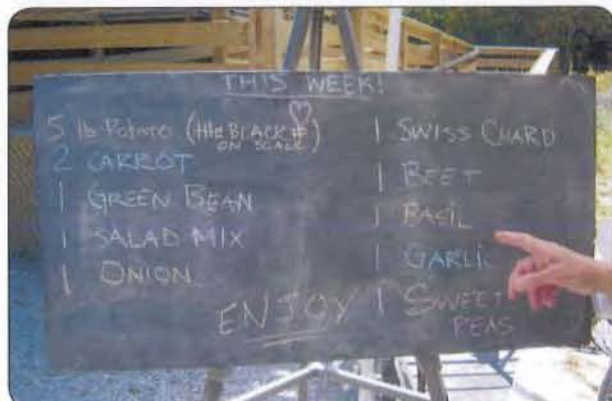 THIS WEEK!
5 lb Potatoes (the BLACK #
ON SCALE)
2 CARROT
1 GREEN BEAN
1 SALAD MIX
1 ONION
1 SWISS CHARD
1 BEET
1 BASIL
1 GARLIC
1 SWEET
PEAS
ENJOY